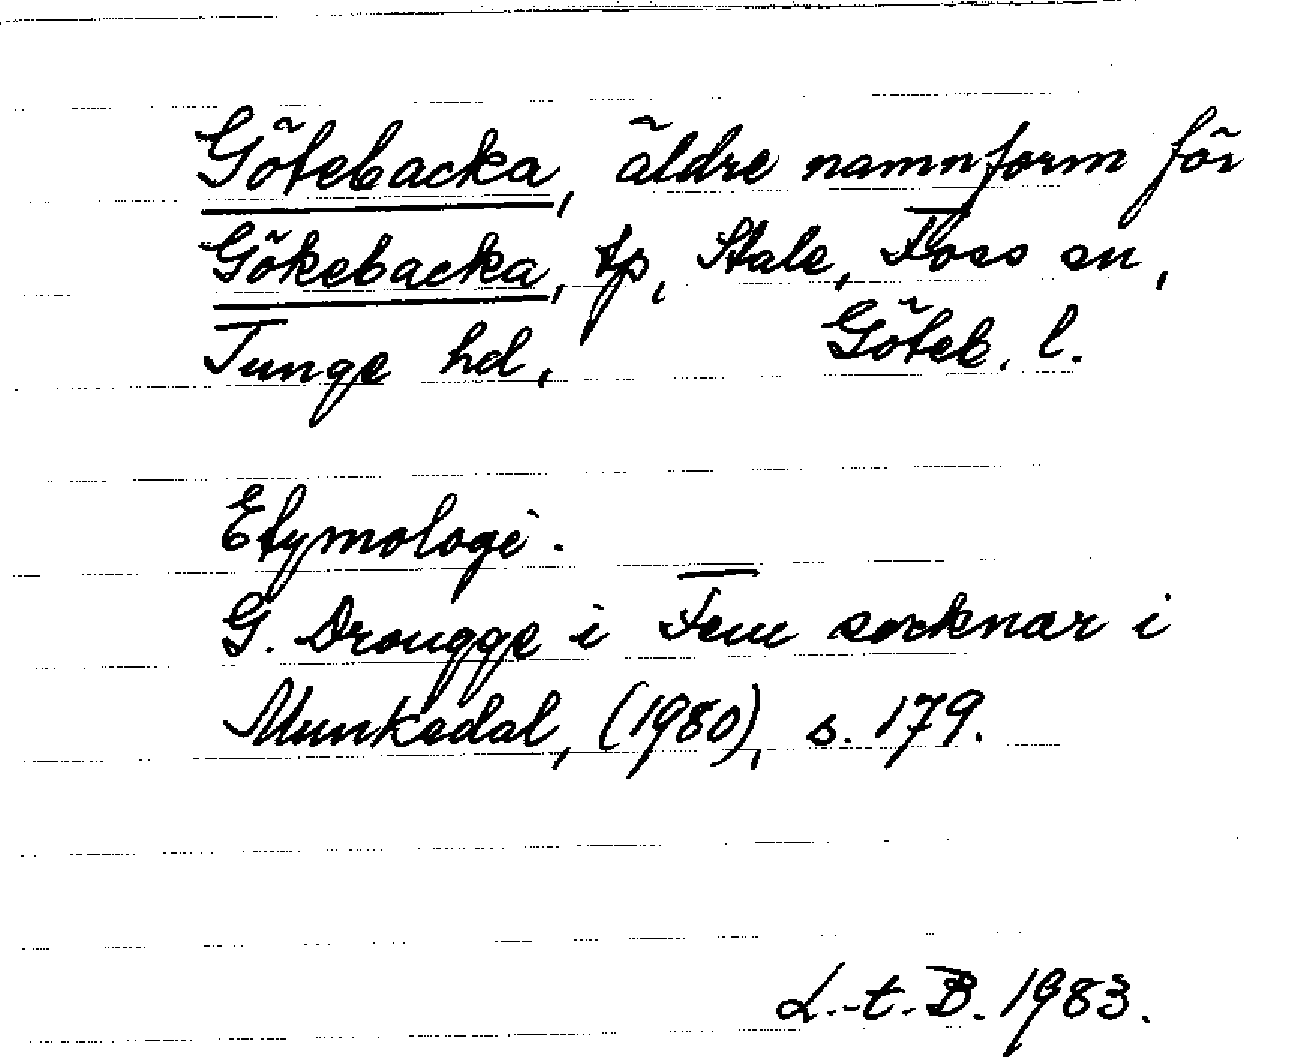 Götebacka, äldre namnform för
Gökebacka, tp, Stale, Foss sn,
Tunge hd, Göteb. l.
Etymologi.
G. Drougge i Fem socknar i
Munkedal, (1980), s. 179.
L.-t. B. 1983.